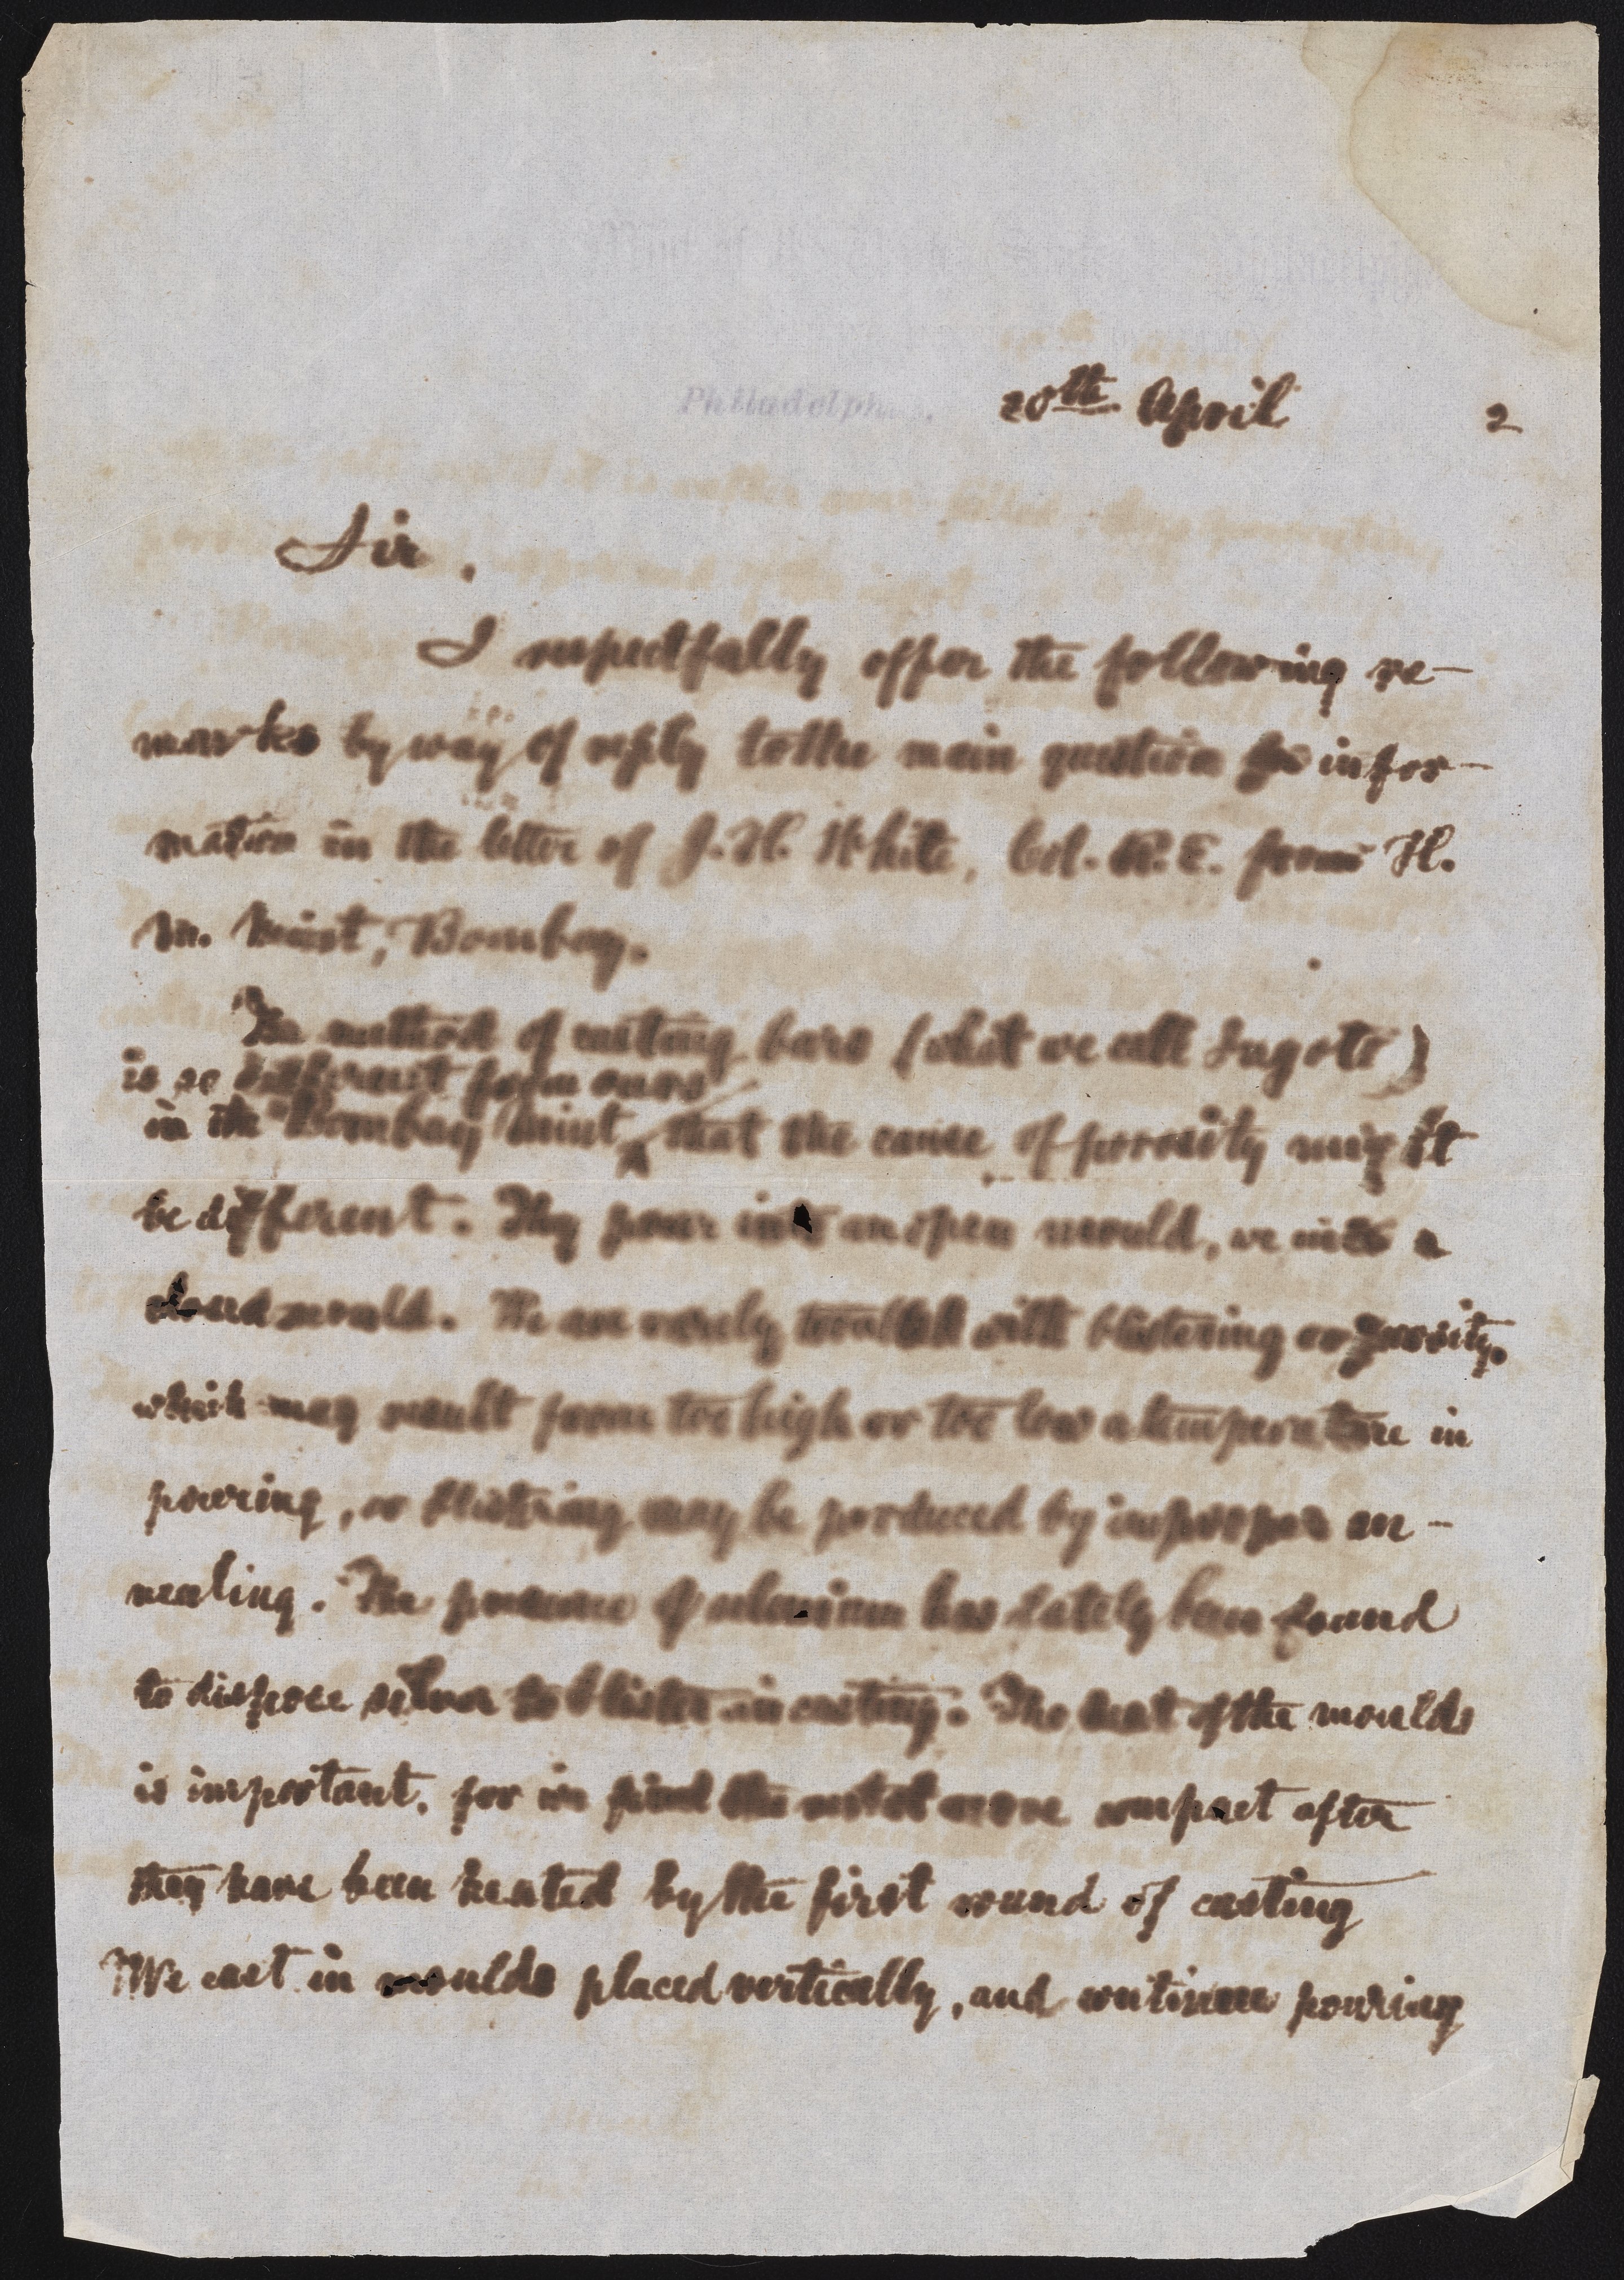 Mint of the United States Philadelphia
Philadelphia. 20th April 2
Sir,
I respectfully offer the following re-
marks by way of reply to the main question for infor-
mation in the letter of J. H. White, Col. R. E. from H.
M. Mint, Bombay.
The method of casting bars (what we call Ingots)
is so different from ours
in the Bombay Mint, that the cause of porosity might
be different. They pour into an open mould, we into a
closed mould. We are rarely troubled with blistering or porosity.
which may result from too high or too low a temperature in
pouring, or blistering may be produced by improper an-
nealing. The presence of selenium has lately been found
to dispose silver to blister in casting. The heat of the moulds
is important, for we find the metal more compact after
they have been heated by the first round of casting
We cast in moulds placed vertically, and continue pouring